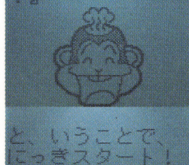 と、いうことで、
にっきスタート!